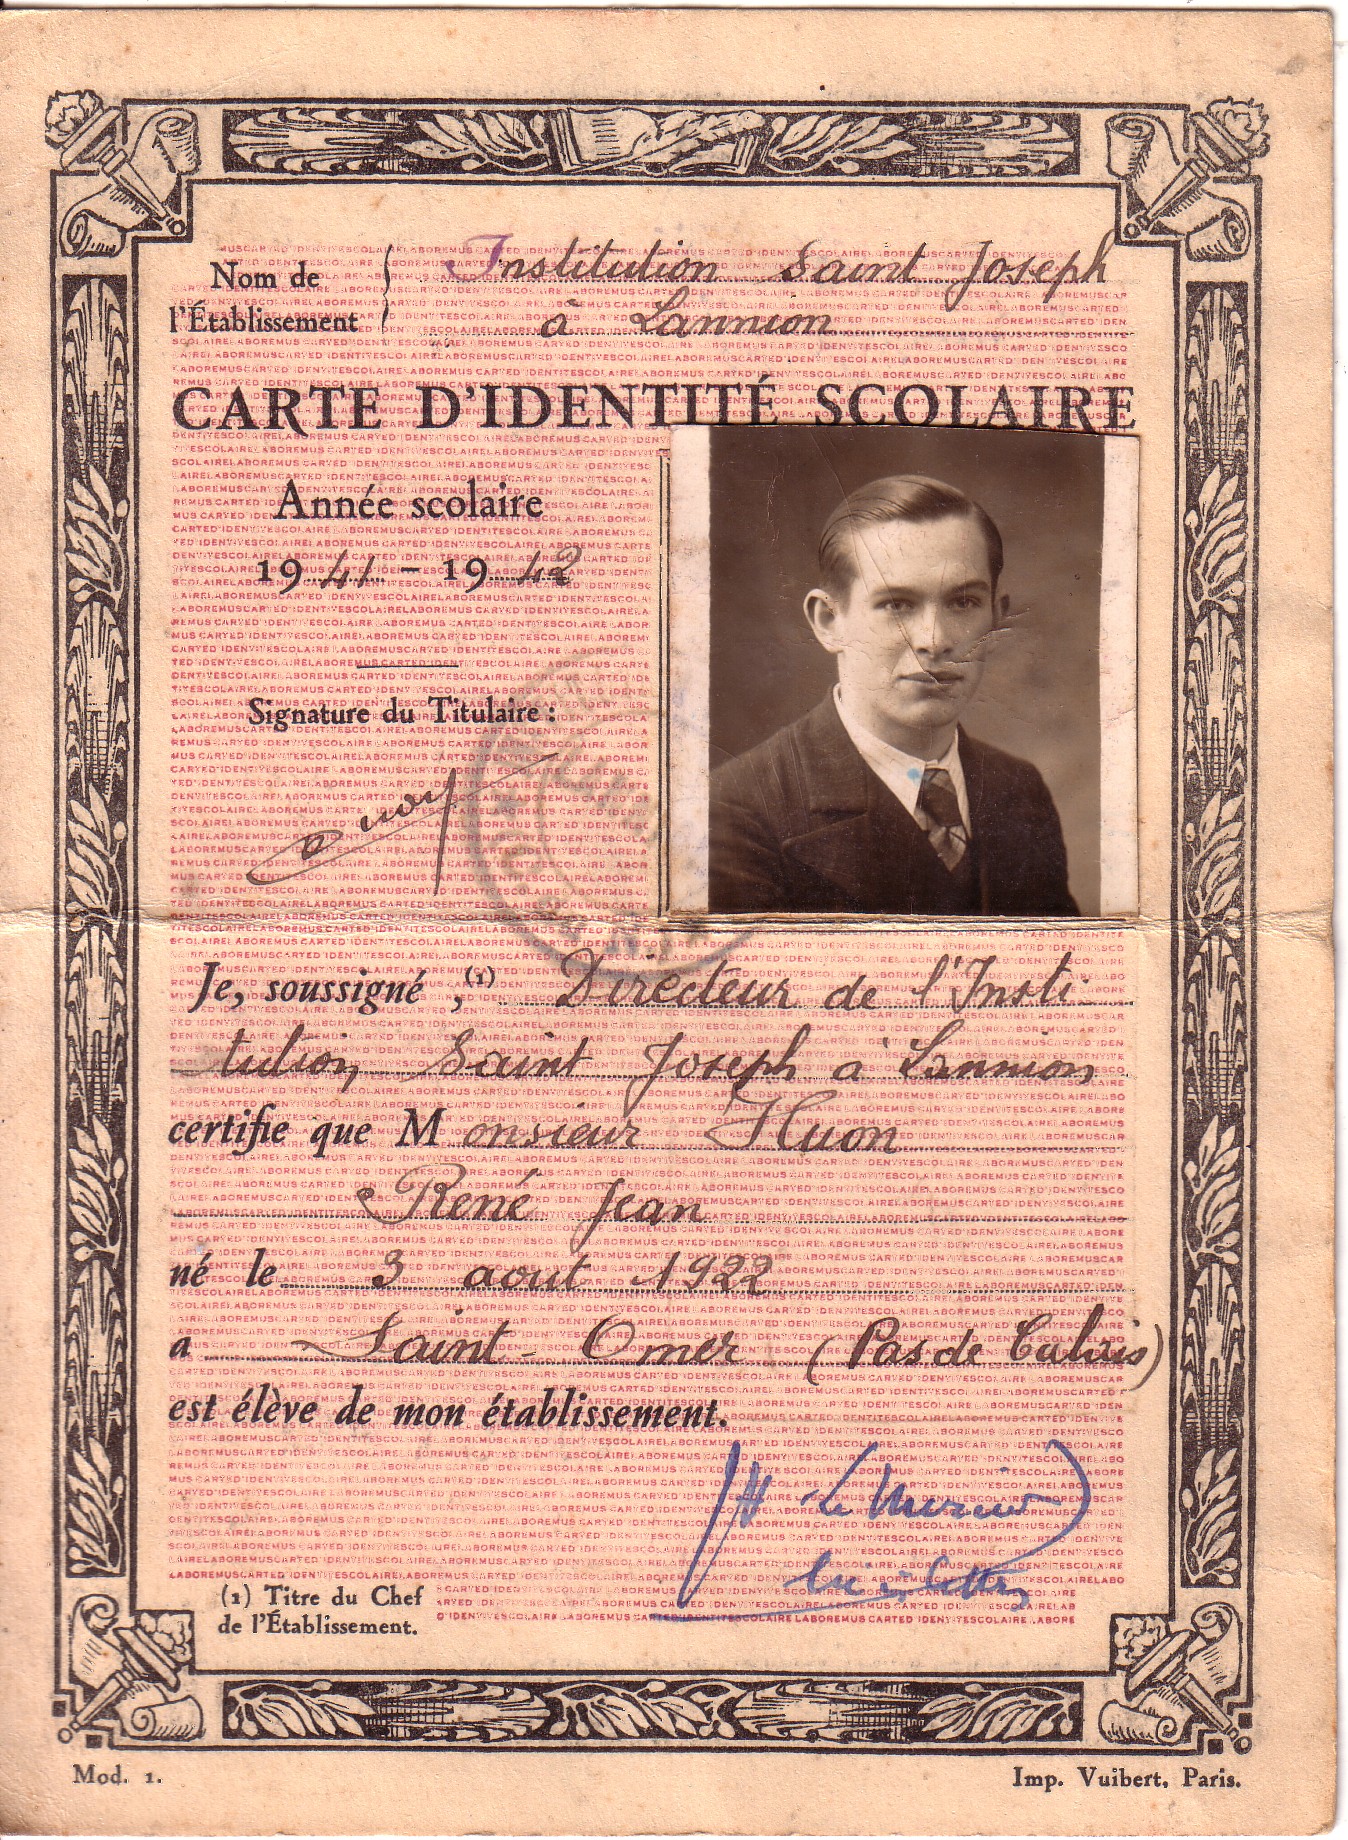 Nom de l'Établissement Institution Saint Joseph
à Lannion
CARTE D'IDENTITÉ SCOLAIRE
Année scolaire
1941 - 1942
Signature du Titulaire :
Je, soussigné ,(1) Directeur de l'Insti-
tution Saint Joseph à Lannion
certifie que Monsieur Huon
René Jean
né le 3 août 1922
a Saint-Omer (Pas de Calais)
est élève de mon établissement.
(1) Titre du Chef
de l'Établissement.
Mod. 1.
Imp. Vuibert, Paris.